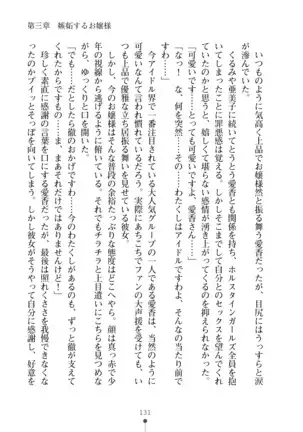 第三章　嫉妬するお嬢様
いつものように気高く上品でお嬢様然と振る舞う愛香だったが、目尻にはうっすらと涙
が滲んでいた。
くるみや亜美子に続いてとうとう愛香とも関係を持ち、ホルスタインガールズ全員を抱
いたのかと思うと罪悪感は覚える。しかしそこまでして自分とのセックスを望んでくれて
いたのかと思うと、嬉しくて堪らない感情が湧き上がってきた。
「可愛いです……とっても可愛いですよ、愛香さん……」
「なっ……な、何を突然……わ、わたくしはアイドルですわよ？　そんなの当たり前で
可愛いですって……」
今アイドル界で一番注目されている大人気グループの一人である愛香は、当然のように
も上品で優雅な立ち居振る舞いを見せている彼女が、
のだろう。実際にあちこちでファンの大声援を受けても、い
しかし、今のお嬢様はそんな普段の余裕たっぷりな態度はどこへやら。顔は真っ赤で少
年の視線から逃れるように俯いている。それでもチラチラと上目遣いにこちらを見ながら
に、ゆっくりと口を開いた。
「でも……だとしたら徹のおかげですわ……今のわたくしがあるのは、徹が支えて
くださったから……ま、まあそれだけではありませんけど！」
珍しく素直に感謝の言葉を口にする愛香だったが、最後は照れくささを我慢できなくな
ったのかプイッとそっぽを向いてしまう。しかし彼女がそうやって自分に感謝し、好意を
131